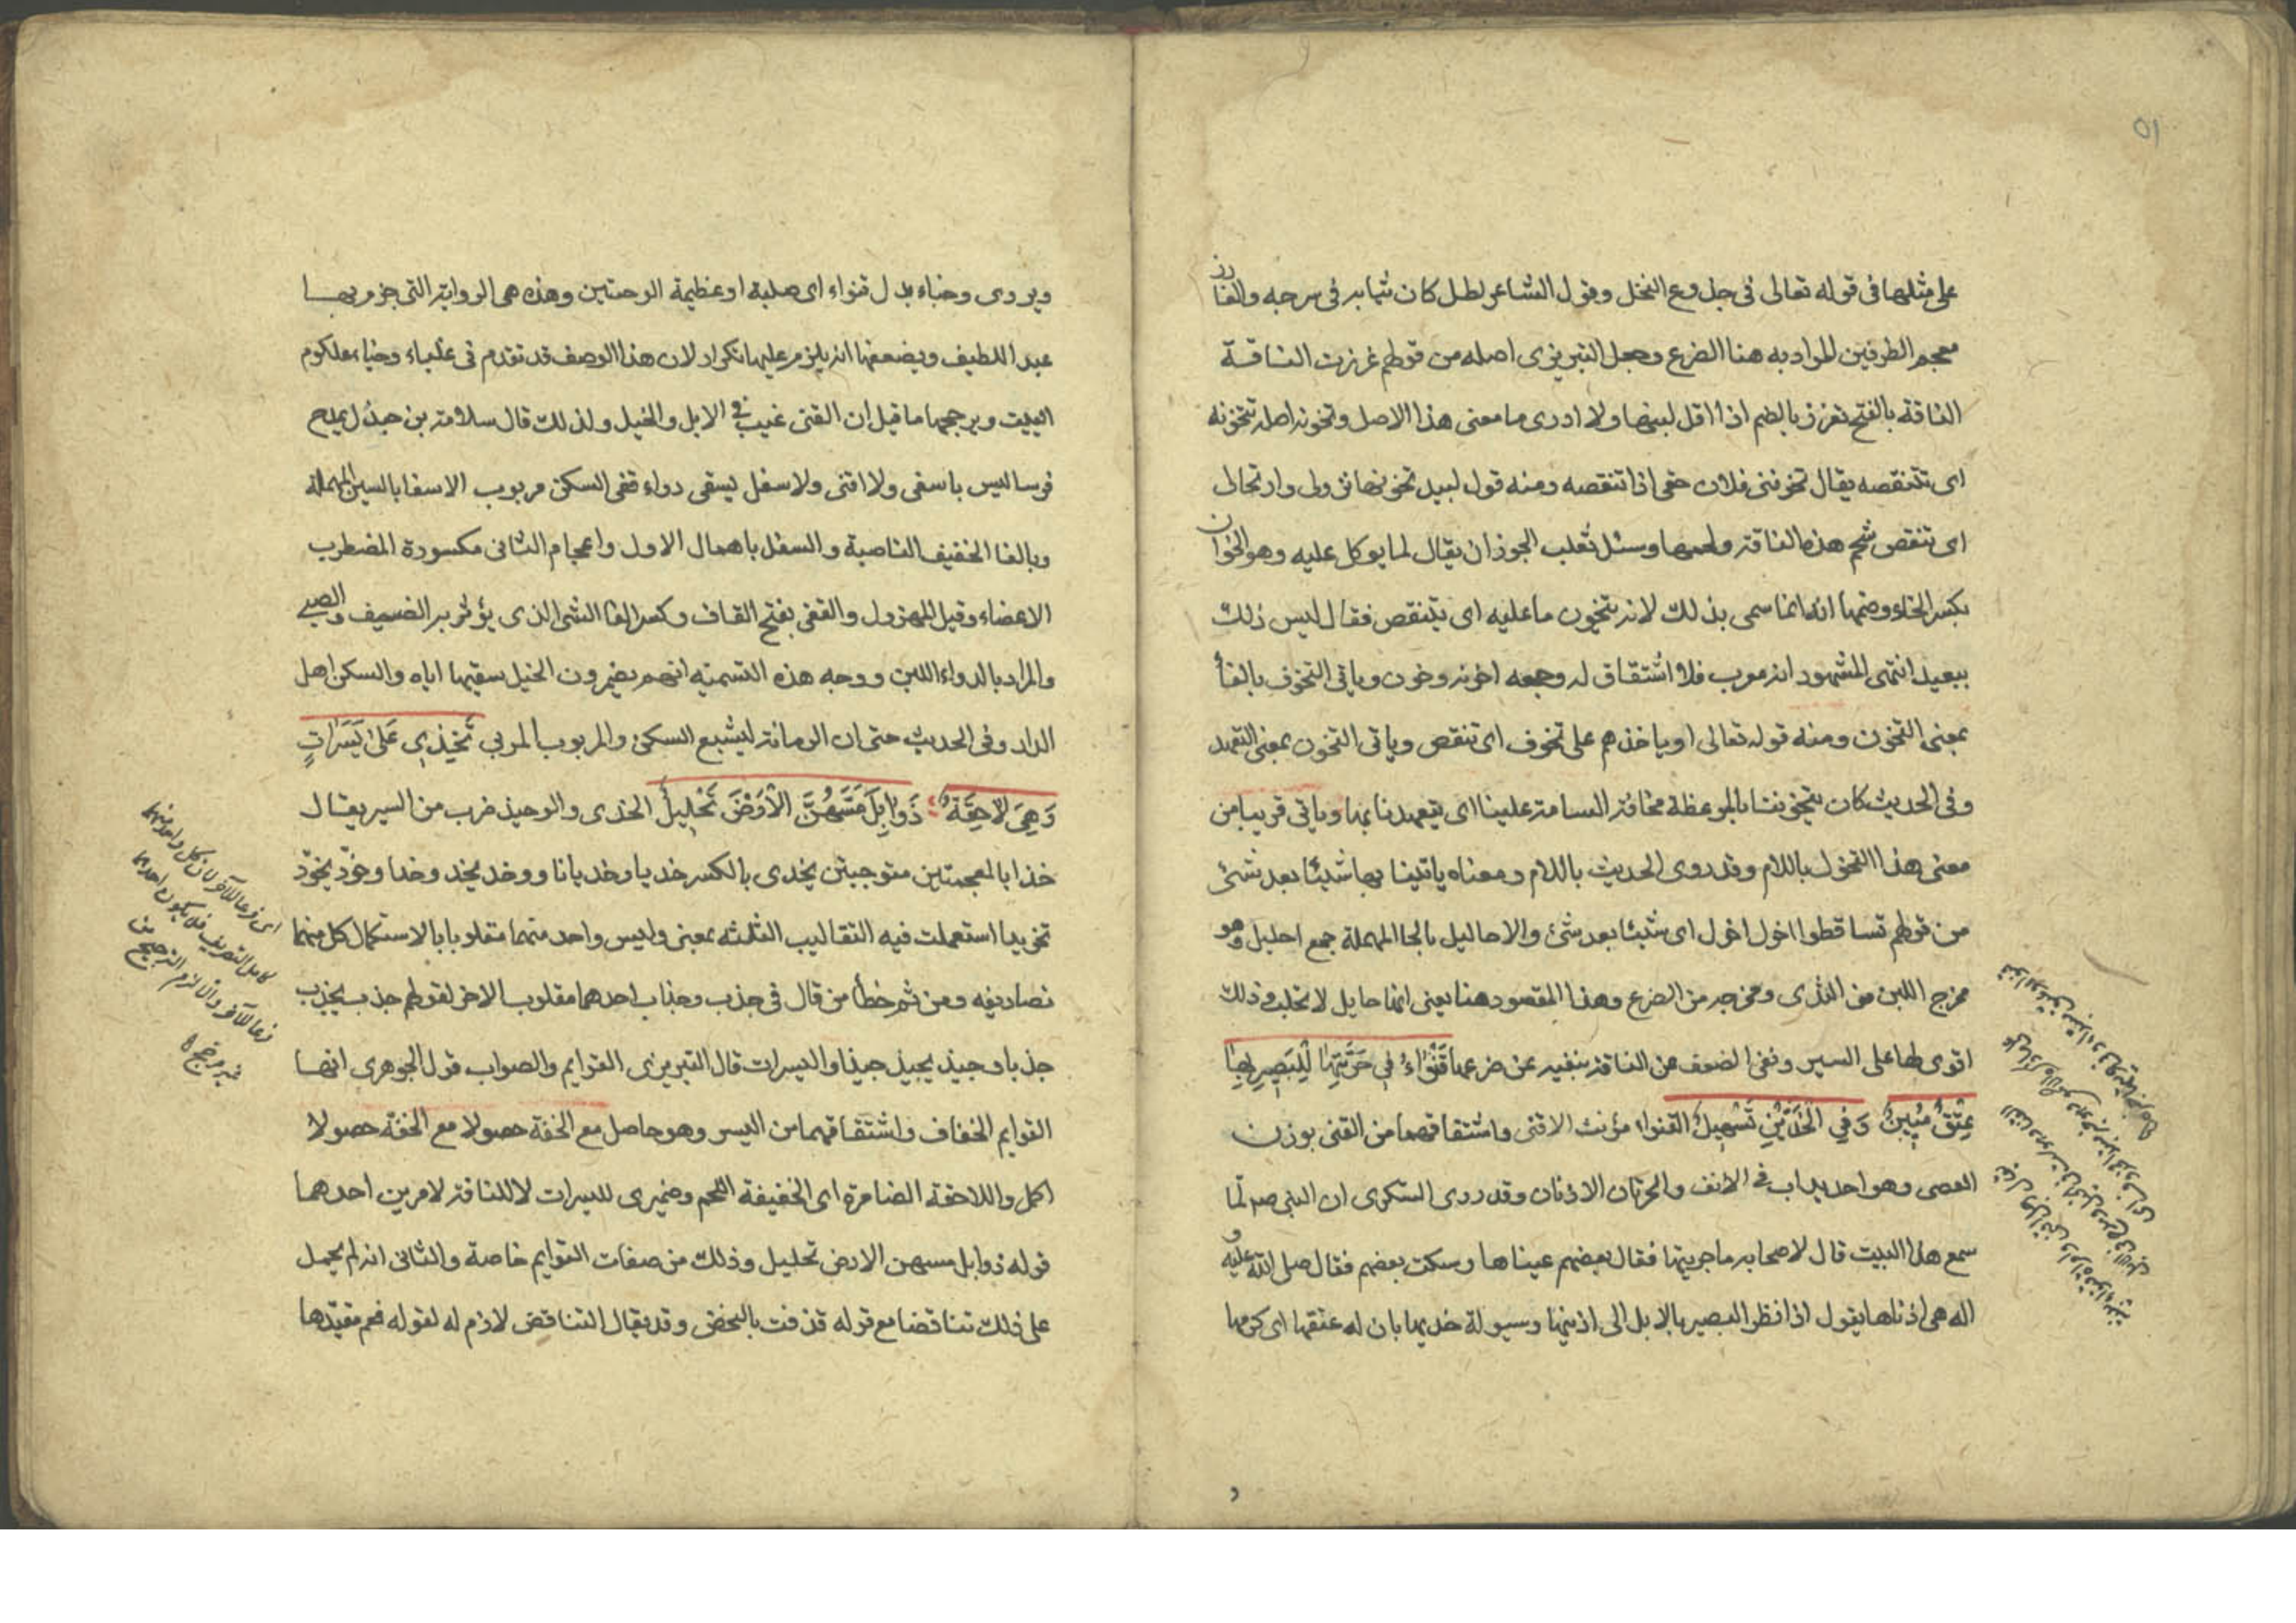 ٥١
على مثلها فى قوله تعالى فى جذوع النخل وقول الشاعر بطل كان ثيابه فى سرحه والغارز
معجم الطرفين المراد به هنا الضرع وجعل التبريزى اصله من قولهم غرزت الناقة
الناقة بالفتح تغرز بالضم اذا اقل لبنها ولا ادرى ما معنى هذا الاصل وتخونه اصله تتخونه
اى تتنقصه يقال تخوفنى فلان حقى اذا تنقصه ومنه قول لبيد تخونها نزولى وارتحالى
اى تنقص شحم هذه الناقة ولحمها وسئل ثعلب ايجوز ان يقال لما يوكل عليه وهو الخوان
بكسر الخاء وضمها انه انما سمى بذلك لانه يتخون ما عليه اى يتنقص فقال ليس ذلك
ببعيد انتهى المشهور انه معرب فلا اشتقاق له وجمعه اخونه وخون وياتى التخوف بالفأ
بمعنى التخون ومنه قوله تعالى او ياخذهم على تخوف اى تنقص وياتى التخون بمعنى التعهد
وفى الحديث كان يتخوننا بالموعظة مخافة السامة علينا اى يتعهدنا بها وياتى قريبا من
معنى هذا التخول باللام وقد روى الحديث باللام ومعناه ياتينا بها شيئا بعد شئ
من قولهم تساقطوا اخول اخول اى شيئا بعد شئ والاحاليل بالحا المهملة جمع احليل وهو
مخرج اللبن من الثدى ومخرجه من الضرع وهذا المقصود هنا يعنى انها حايل لا تحلب وذلك
اقوى لها على السير ونفى الضعف عن الناقة بنفيه عن ضرعها قَنْوَاءُ فِي حَرَّتَيْهَا لِلْبَصِيرِ بِهَا
عِتْقٌ مُبِينٌ وَفِي الْخَدَّيْنِ تَسْهِيلُ القنواء مؤنث الاقنى واشتقاقهما من القنى بوزن
العصى وهو احديداب فى الانف والحرتان الاذنان وقد روى السكرى ان النبى صم لما
سمع هذا البيت قال لاصحابه ما حرتيها فقال بعضهم عيناها وسكت بعضهم فقال صلى الله عليه و
اله هى اذناها يقول اذا نظر البصير بالابل الى اذنيها وسهولة خديها بان له عتقها اى كرمها
ويروى وجناء بدل قنواء اى صلبة او عظيمة الوجنتين وهذه هى الرواية التى جزم بها
عبد اللطيف ويضعفها انه يلزم عليها تكرار لان هذا الوصف قد تقدم فى غلباء وجناء علكوم
البيت ويرجحها ما قيل ان القنى عيب فى الابل والخيل ولذلك قال سلامة بن جندل يمدح
فرسا ليس باسفى ولا اقنى ولا سغل يسقى دواء قفى السكن مربوب الاسفا بالسين المهملة
وبالفا الخفيف الناصية والسغل باهمال الاول واعجام الثانى مكسورة المضطرب
الاعضاء وقيل المهزول والقفى بفتح القاف وكسر الفا الشئ الذى يؤثر به الضيف والصبى
والمراد بالدواء اللبن ووجه هذه التسميه انهم يضمرون الخيل بسقيها اياه والسكن اهل
الدار وفى الحديث حتى ان الرمانة ليشبع السكن والمربوب المربى تَخْذِي عَلَى يَسَرَاتٍ
وَهِيَ لَاحِقَةٌ ذَوَابِلٌ مَسَّهُنَّ الْأَرْضَ تَحْلِيلُ الخدى والوخيذ ضرب من السير يقال
خذا بالمعجمتين متوجبتن يخدى بالكسر خديا وخديانا ووخد يخد وخدا وخوّد يخوّد
تخويدا استعملت فيه التقاليب الثلثه بمعنى وليس واحد منهما مقلوبا بالاستكمال كل منهما
تصاريفه ومن ثم خطأ من قال فى جذب وجذاب احدهما مقلوب الاخر لقولهم جذب يجذب
جذبا وجبذ يجبذ جبذا واليسرات قال التبريزى القوايم والصواب قول الجوهرى انها
القوايم الخفاف واشتقاقهما من اليسر وهو حاصل مع الخفة حصولا مع الخفة حصولا
اكمل واللاحقة الضامرة اى الخفيفة اللحم وضميرى لليسرات لا للناقة لامرين احدهما
قوله ذوابل مسهن الارض تحليل وذلك من صفات القوايم خاصة والثانى انه لم يحمل
على ذلك تناقضا مع قوله قذفت بالنحض وقد يقال التناقض لازم له لقوله فعم مقيّدها
اى فرعا للآخر لان كل واحد منهما
كامل التصريف فلا يكون احدهما
فرعا للآخر والا لزم الترجيح من
غير مرجح